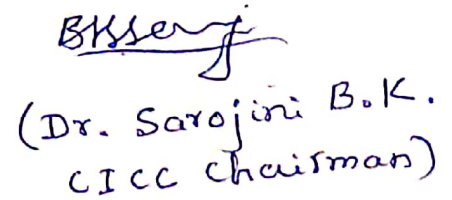 (Dr. Sarojini B.K.
CICC Chairman)